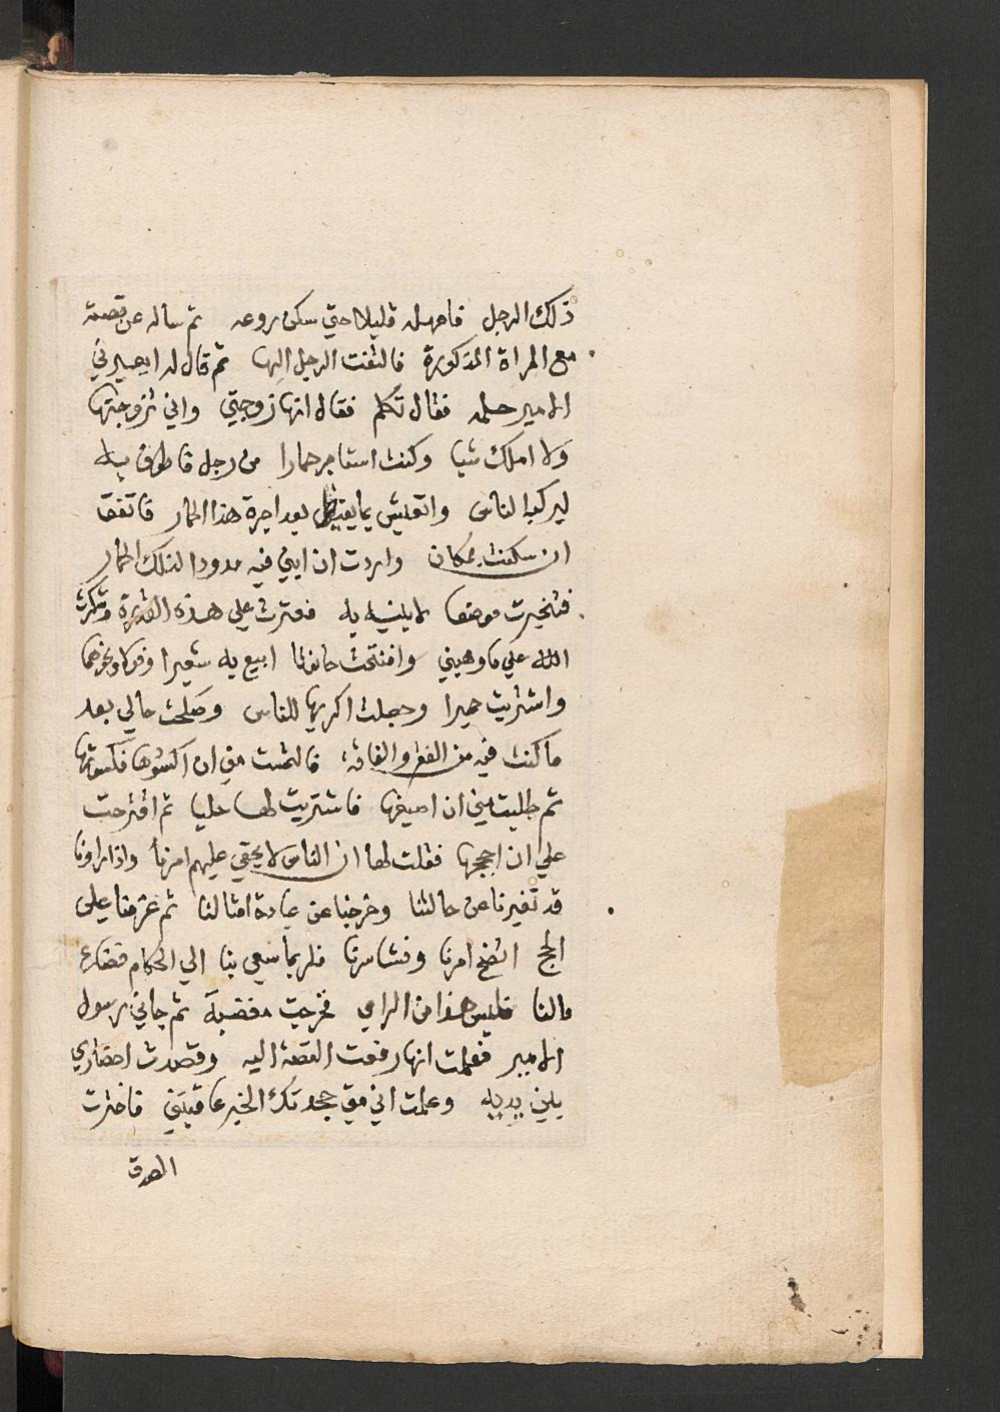 ذلك الرجل فامهله قليلا حتي سكن روعه ثم ساله عن قصته
مع المراة المذكورة فالتفت الرجل اليها ثم قال له ايعيرني
الامير حلمه فقال تكلم فقال انها زوجتي واني تزوجتها
ولا املك شيا وكنت استاجر حمارا من رجل فاطوف به
ليركبه الناس واتعيش بما يفضل بعد اجرة هذا الحمار فاتفق
ان سكنت بمكان واردت ان ابني فيه مدودا لذلك الحمار
فتخيرت موضعا لابنيه به فعثرت علي هذه القديرة وشكرت
الله علي ما وهبني وافتتحت حانوتا ابيع به شعيرا وفولا ونحوهما
واشتريت حميرا وجعلت اكريها للناس وصلحت حالي بعد
ما كنت فيه من الفقر والفاقه فالتمست مني ان اكسوها فكسوتها
ثم طلبت مني ان اصيغها فاشتريت لها حليا ثم اقترحت
علي ان احججها فقلت لها ان الناس لا يخفي عليهم امرنا واذا راونا
قد تغيرنا عن حالتنا وخرجنا عن عادة امثالنا ثم عزمنا علي
الحج اتضح امرنا وفشا سرنا فلربما سعي بنا الي الحكام فضاع
مالنا فليس هذا من الراي فخرجت مغضبة ثم جاني رسول
الامير فعلمت انها رفعت القصة اليه وقصدت احضاري
بين يديه وعلمت اني متي جحدتك الخبر عاقبتني فاخترت
الصدق